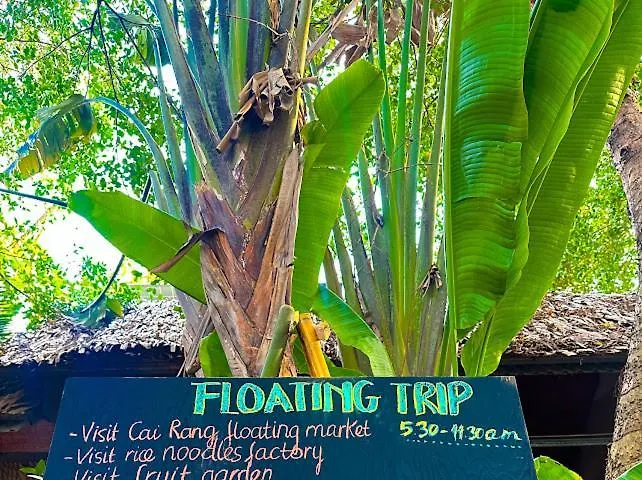 FLOATING TRIP
- Visit Cai Rang floating market 530-11:30am
- Visit rice noodles factory
- Visit fruit garden